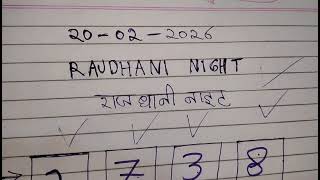 20-02-2026
RAJDHANI NIGHT
राजधानी नाइट
7 3 8